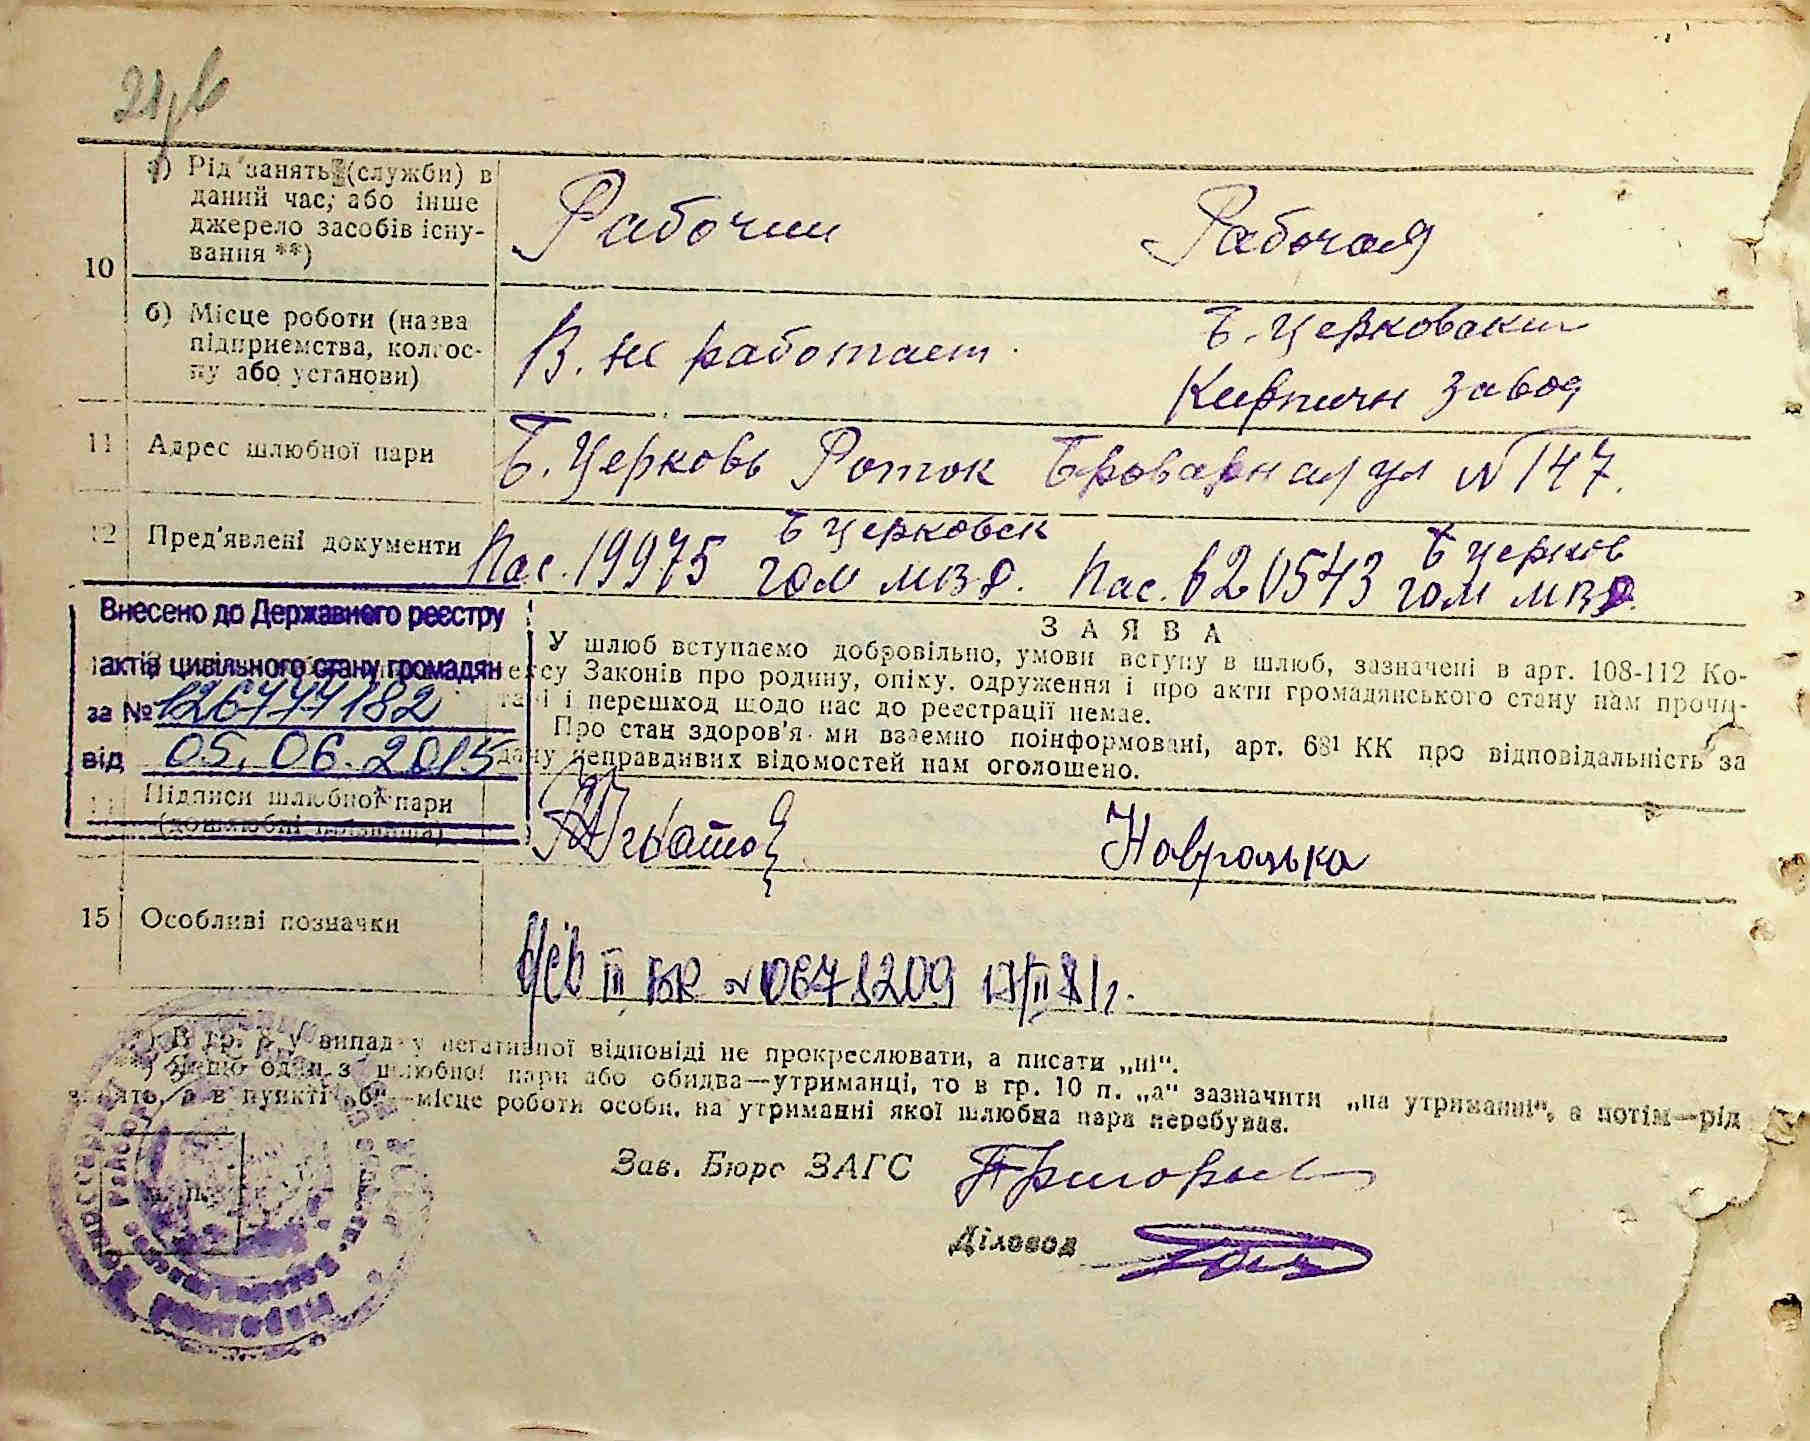 а) Рід занять (служби) в
даний час, або інше
джерело засобів існу-
вання **)
Рабочий
Рабочая
10
б) Місце роботи (назва
підприємства, колгос-
пу або установи)
В. не работает.
Б. Церковский
Кирпичн завод
11 Адрес шлюбної пари
Б. Церковь Роток Броварная ул N 147.
12 Пред'явлені документи
Пас. 19975 Б Церковск
гом МВД.
Пас. 620543 Б Церков
гом МВД.
Внесено до Державного реєстру
актів цивільного стану громадян
за № 126777182
від 05.06.2015
ЗАЯВА
У шлюб вступаємо добровільно, умови вступу в шлюб, зазначені в арт. 108-112 Ко-
ексу Законів про родину, опіку, одруження і про акти громадянського стану нам прочи-
тані і перешкод щодо нас до реєстрації немає.
Про стан здоров'я ми взаємно поінформовані, арт. 68¹ КК про відповідальність за
дачу неправдивих відомостей нам оголошено.
Підписи шлюбної пари
(дошлюбні прізвища)
15 Особливі позначки
III БК № 0678209
*) В гр. 8 у випадку негативної відповіді не прокреслювати, а писати „ні“.
) Якщо один з шлюбної пари або обидва—утриманці, то в гр. 10 п. „а“ зазначити „на утриманні“, а потім—рід
занять, а в пункті „б“—місце роботи особи, на утриманні якої шлюбна пара перебуває.
Зав. Бюро ЗАГС
Діловод